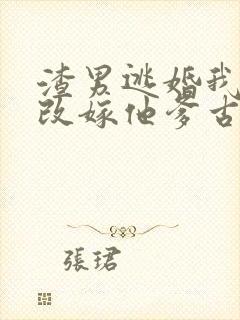 渣男逃婚我
改嫁他爹古
張珺